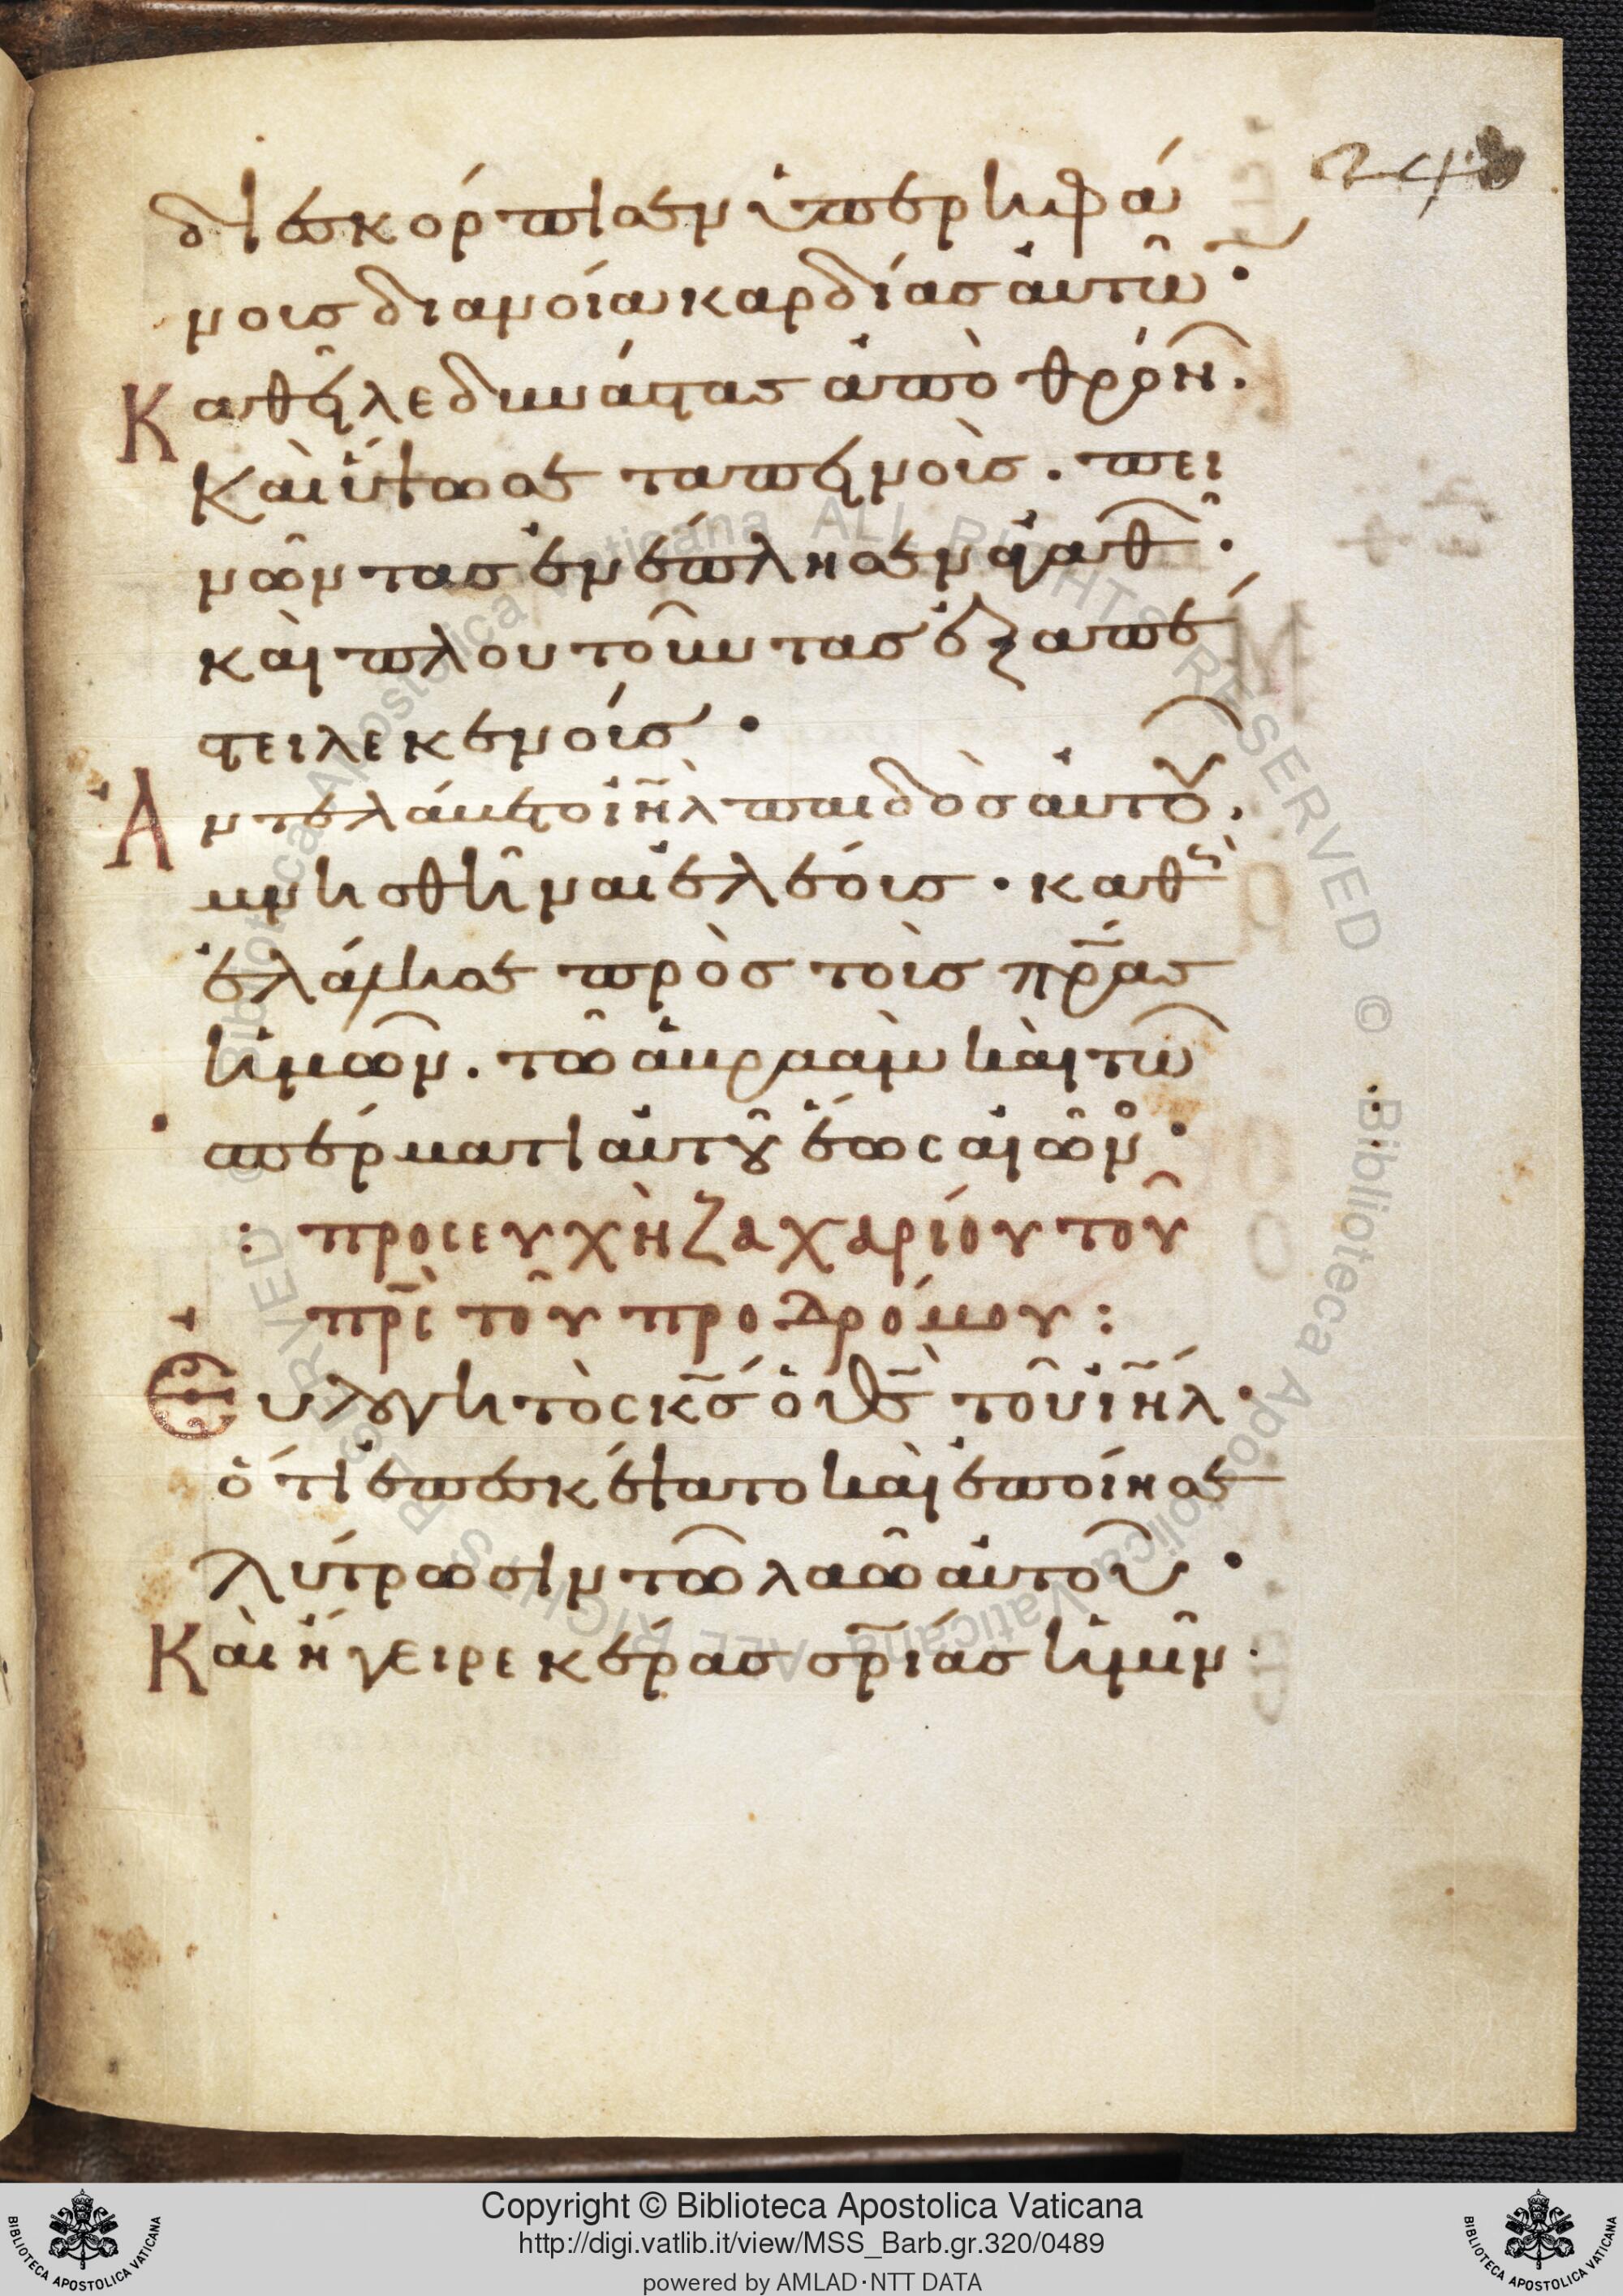 243
διεσκόρπισεν ὑπερηφά
νους διανοία καρδίας αὐτῶ·
Καθεῖλε δυνάστας ἀπὸ θρόν.
Καὶ ὕψωσε ταπεινοὺς. πει
νῶντας ἐνέπλησεν ἀγαθ·
καὶ πλουτοῦντας ἐξαπέ
στειλε κενούς·
Ἀντελάβετο ἰη̅λ παιδὸς αὐτοῦ.
μνησθῆναι ἐλέους· καθὼ
ἐλάλησε πρὸς τοὺς πρ̅ας
ἡμῶν. τῶ ἀβραὰμ καὶ τῶ
σπέρματι αὐτοῦ ἕως αἰῶνο·
: προσευχὴ ζαχαρίου τοῦ
πρ̅ς τοῦ προδρόμου :
Εὐλογητὸς κ̅ς ὁ θ̅ς τοῦ ἰη̅λ·
ὅτι ἐπεσκέψατο καὶ ἐποίησε
λύτρωσιν τῶ λαῶ αὐτοῦ·
Καὶ ἤγειρε κέρας σρ̅ίας ἡμῖν·
Copyright © Biblioteca Apostolica Vaticana
http://digi.vatlib.it/view/MSS_Barb.gr.320/0489
powered by AMLAD·NTT DATA